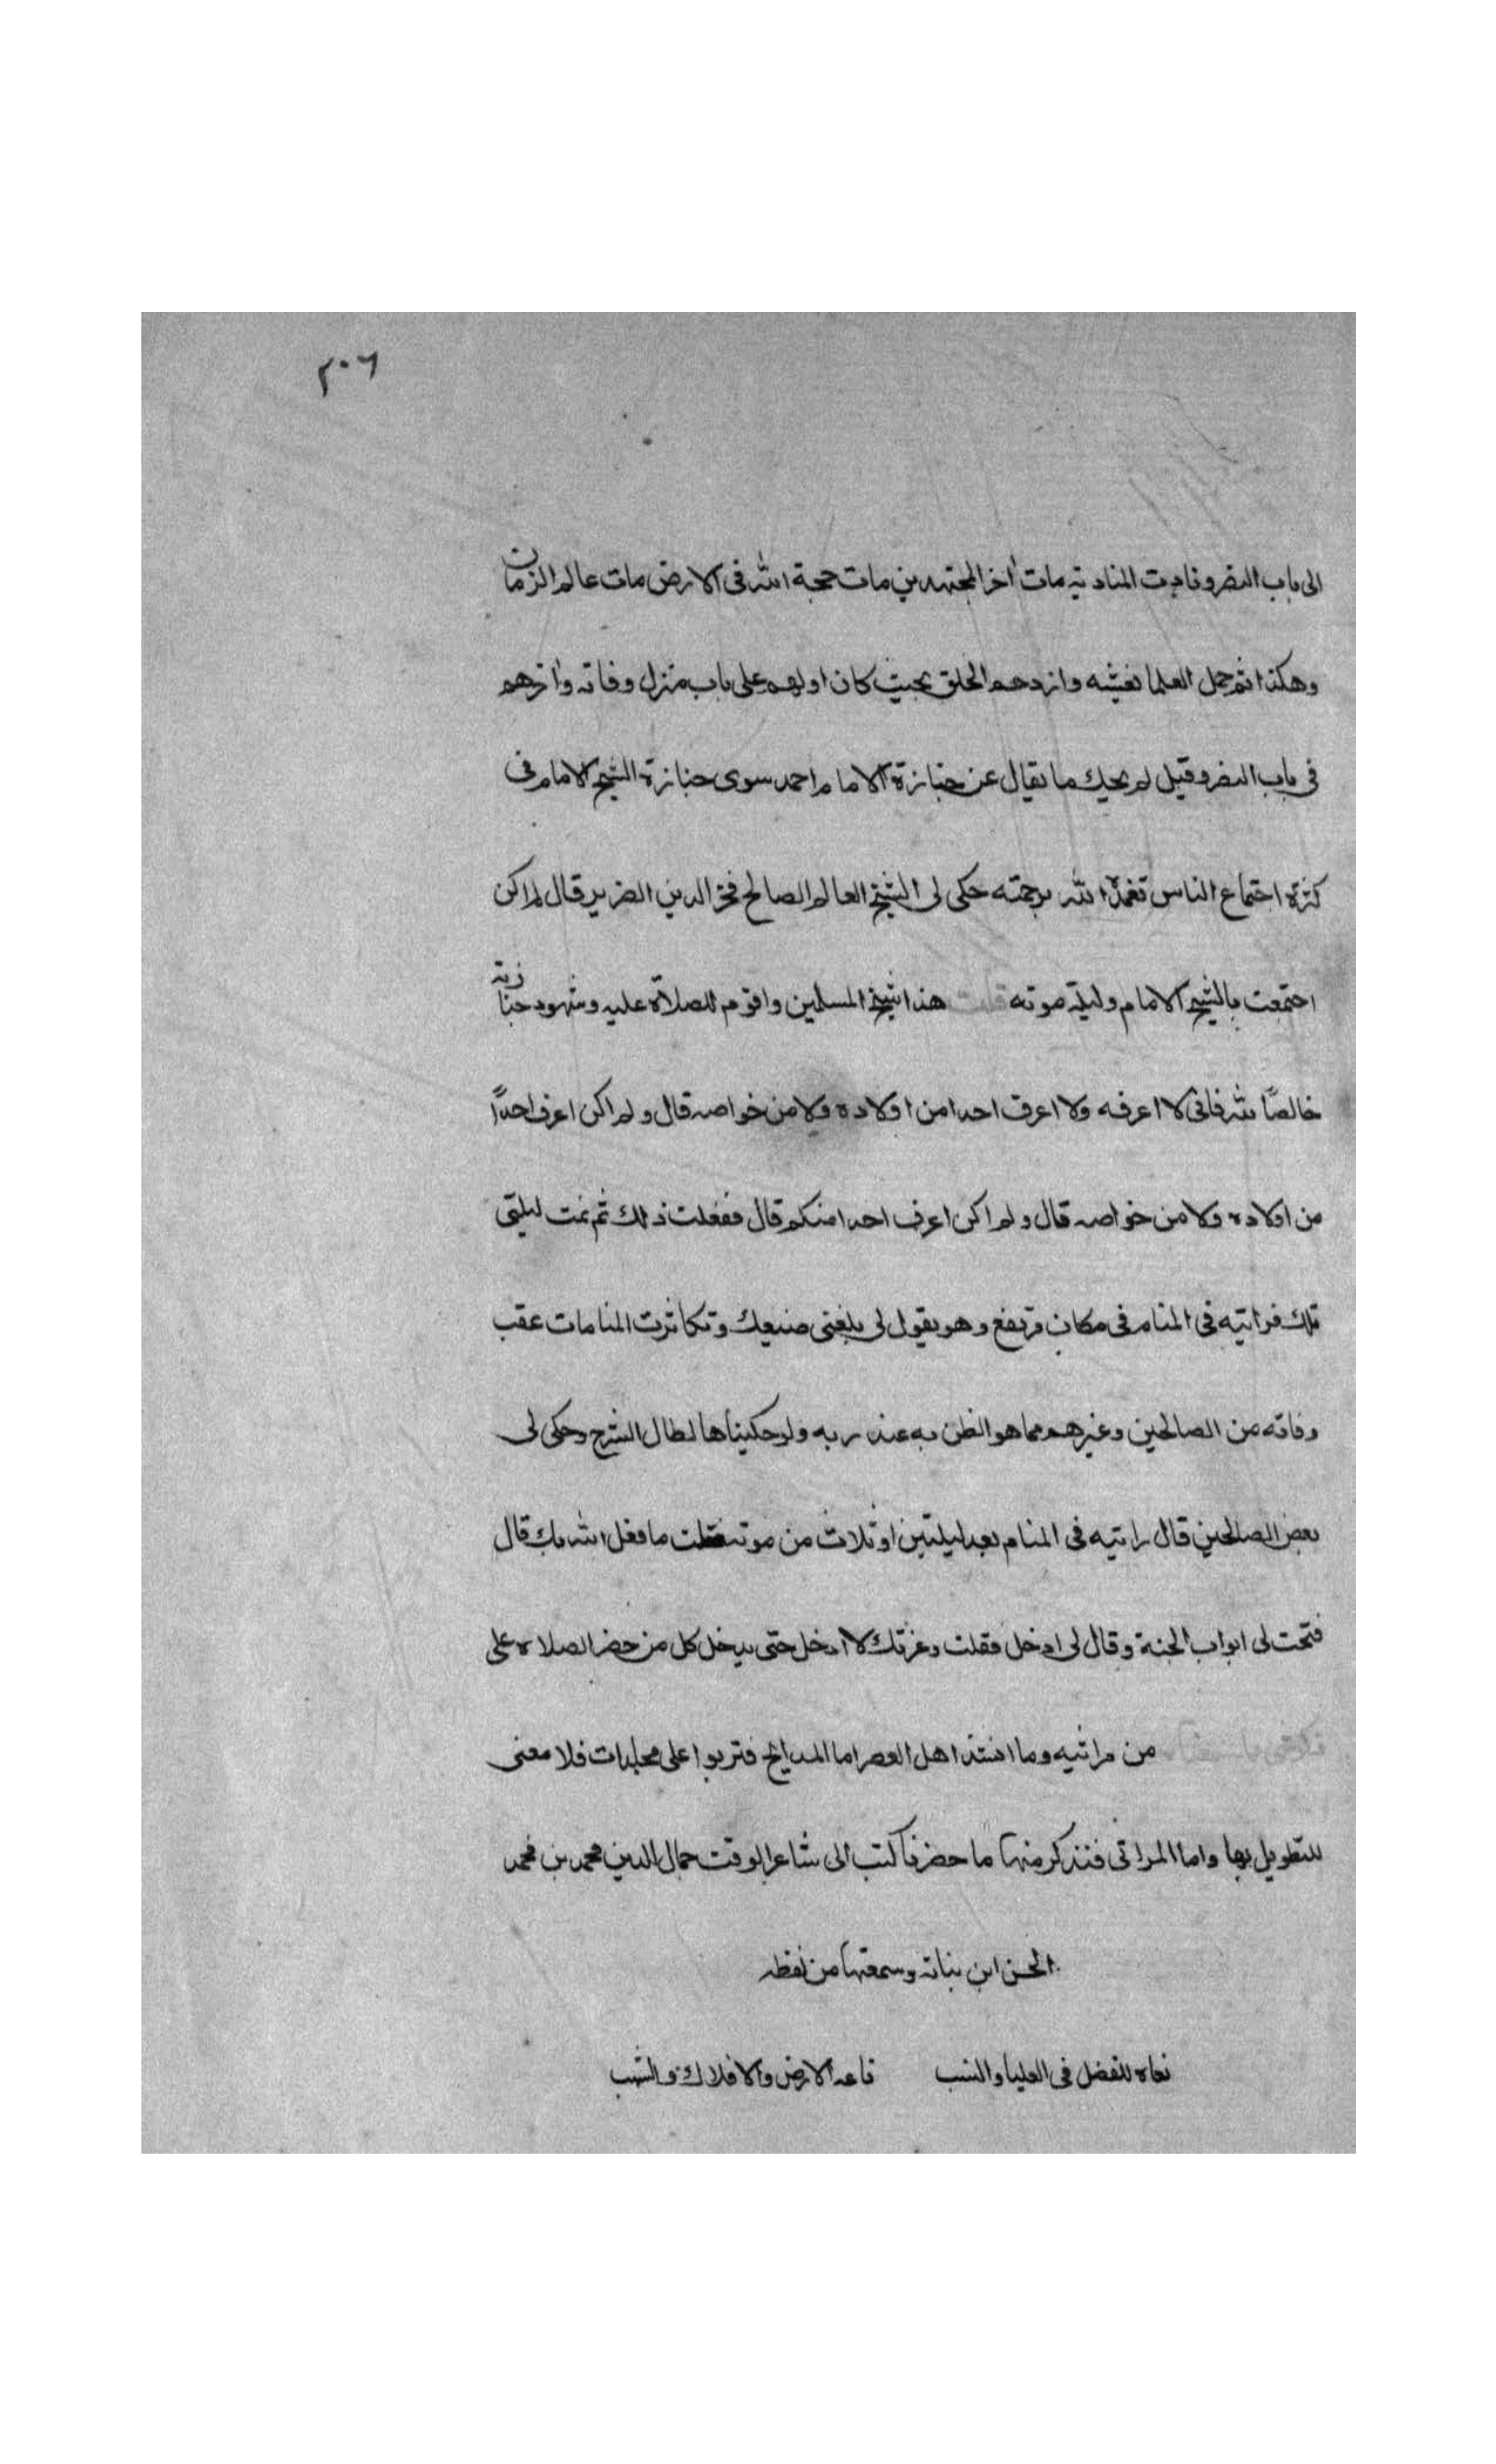 ٢٠٦
الى باب النصر ونادت المنادية مات آخر المجتهدين مات حجة الله فى الارض مات عالم الزمان
وهكذا ثم حمل العلما نعشه وازدحم الخلق بحيث كان اولهم على باب منزل وفاته وآخرهم
فى باب النصر وقيل لم يحك ما يقال عن جنازة الامام احمد سوى جنازة الشيخ الامام فى
كثرة اجتماع الناس تغمده الله برحمته حكى لى الشيخ العالم الصالح فخر الدين الضرير قال لم اكن
اجتمعت بالشيخ الامام وليلة موته قلت هذا شيخ المسلمين واقوم للصلاة عليه وشهود جنازته
خالصًا لله فانى لا اعرفه ولا اعرف احدا من اولاده ولا من خواصه قال ولم اكن اعرف احدًا
من اولاده ولا من خواصه قال ولم اكن اعرف احدا منكم قال ففعلت ذلك ثم نمت ليلتى
تلك فرأيته فى المنام فى مكان مرتفع وهو يقول لى بلغنى صنيعك وتكاثرت المنامات عقب
وفاته من الصالحين وغيرهم مما هو الظن به عند ربه ولو حكيناها لطال الشرح وحكى لى
بعض الصالحين قال رايته فى المنام بعد ليلتين او ثلاث من موته فقلت ما فعل الله بك قال
فتحت لى ابواب الجنة وقال لى ادخل فقلت وعزتك لا ادخل حتى يدخل كل من حضر الصلاة على
من مراثيه وما انشد اهل العصر اما المدايح فتربوا على مجلدات فلا معنى
للتطويل بها واما المراثى فنذكر منها ما حضرنا كتب الى شاعر الوقت جمال الدين محمد بن محمد
الحسن ابن نباته وسمعتها من لفظه
نعاه للفضل فى العليا والنسب ناعيه الارض والافلاك والشهب